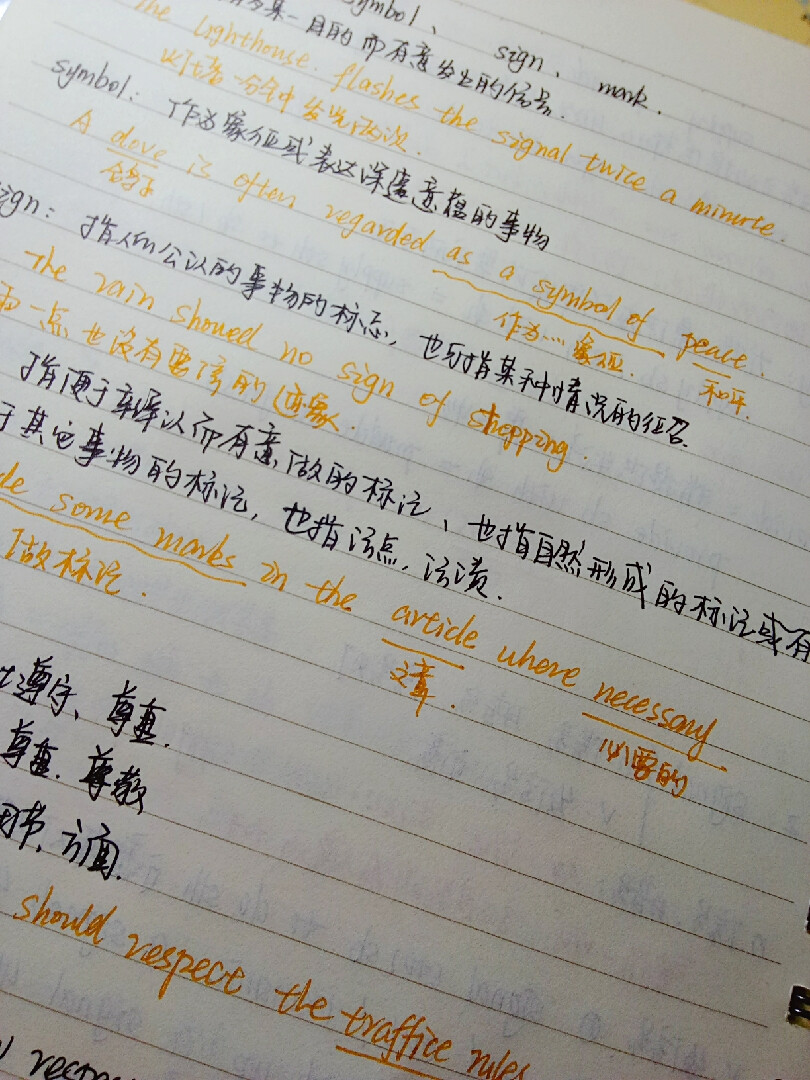 symbol、 sign、 mark.
某一目的而有意发出的信号.
the lighthouse flashes the signal twice a minute.
灯塔一分钟发光两次.
symbol: 作为象征或表达深邃意蕴的事物
A dove is often regarded as a symbol of peace.
鸽子 作为…象征. 和平.
ign: 指人们公认的事物的标志, 也可指某种情况的征召.
The rain showed no sign of stopping.
一点也没有要停的迹象.
指便于辨识以而有意做的标记、也指自然形成的标记或有
于其它事物的标记, 也指污点, 污渍.
de some marks in the article where necessary.
做标记. 文章. 必要的
遵守、尊重.
尊重. 尊敬
细节, 方面.
should respect the traffice rules